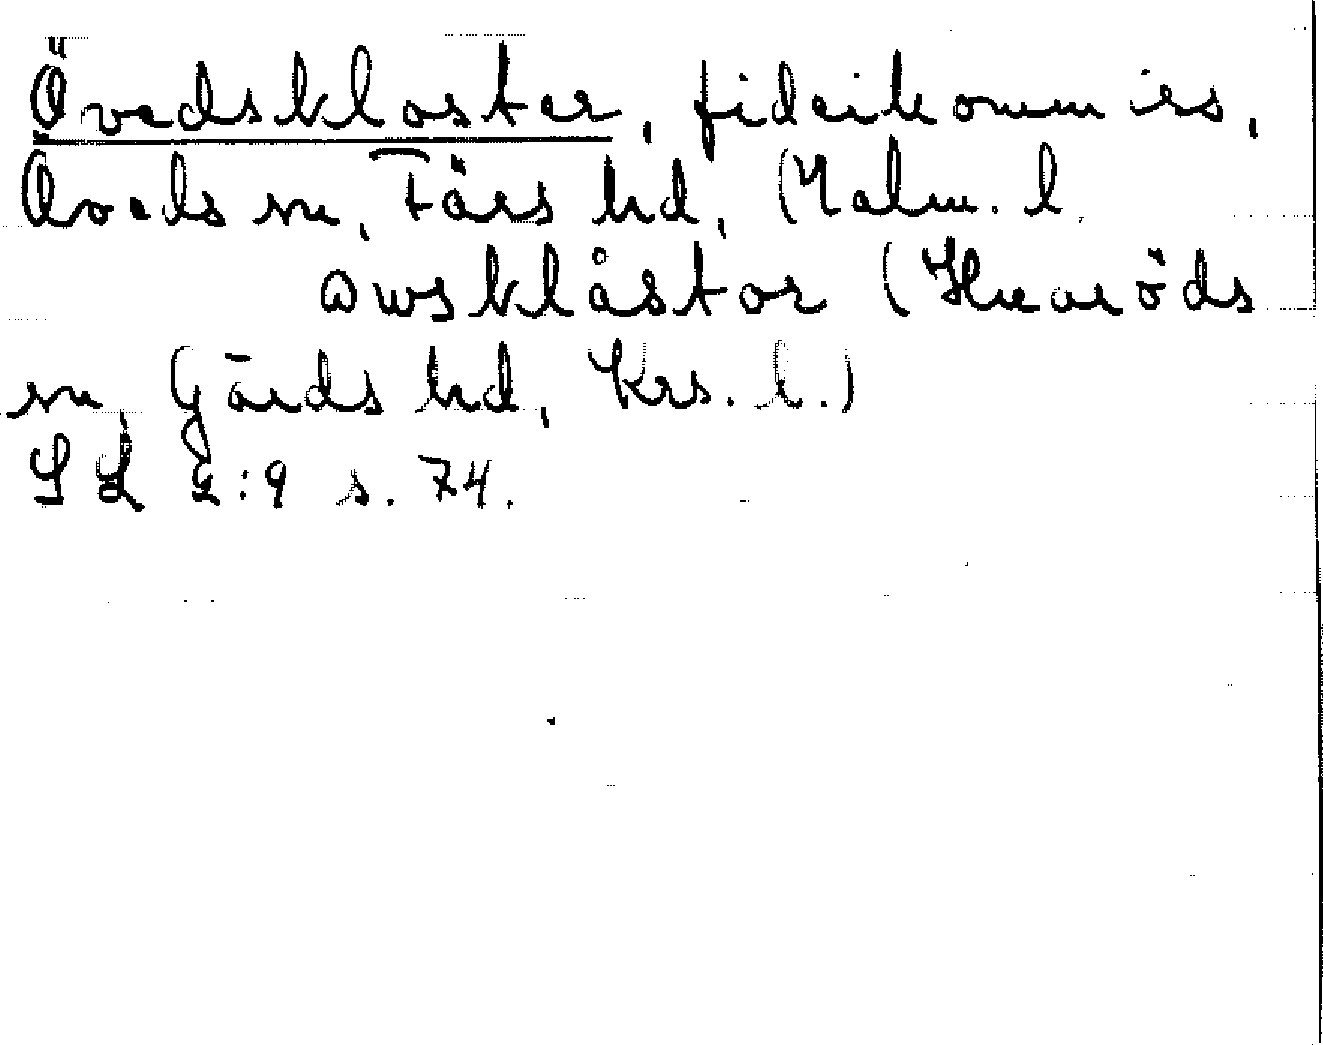 Övedskloster, fideikommiss,
Öveds sn, Färs hd, Malm. l.
owsklåstor (Huaröds
sn, Gärds hd, Krs. l.)
SL 2:9 s. 74.